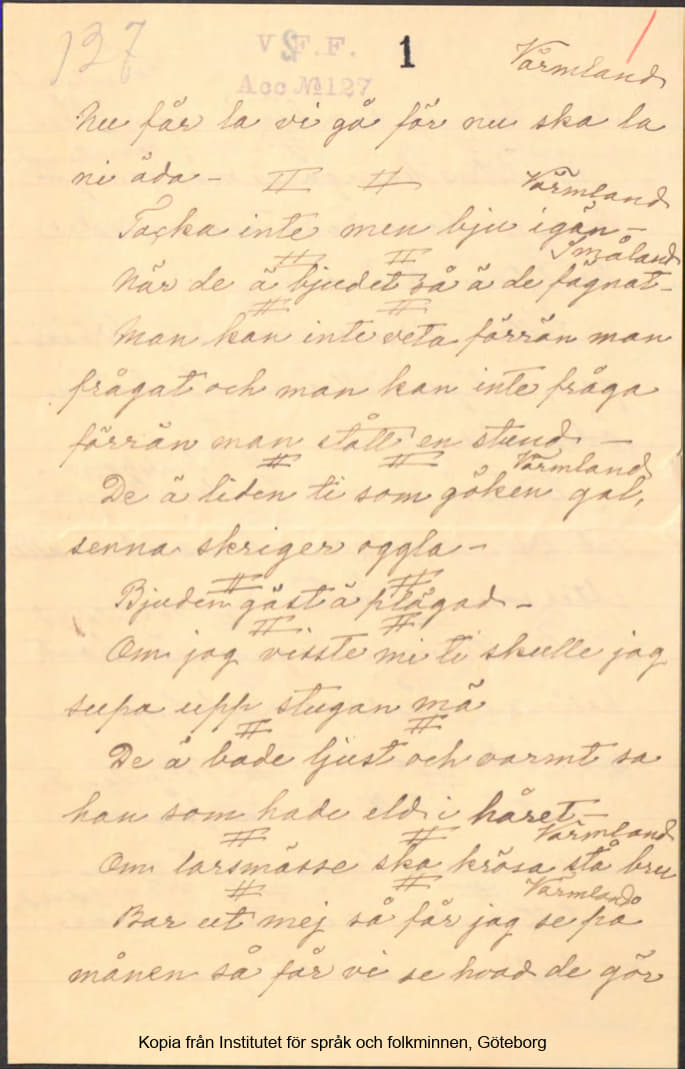 137 V.F.F. 1 Värmland
Acc № 127
Nu får la vi gå för nu ska la
ni äda –
Värmland
Tacka inte men bju igän –
Småland
När de ä bjudet så ä de fägnat –
Man kan inte veta förrän man
frågat och man kan inte fråga
förrän man stått en stund –
Värmland
De ä liden ti som göken gal,
senna skriger oggla –
Bjuden gäst ä plägad –
Om jag visste mi ti skulle jag
supa upp stugan mä
De ä både ljust och varmt sa
han som hade eld i håret –
Värmland
Om larsmässe ska krösa stå bru
Värmland
Bar ut mej så får jag se på
månen så får vi se hvad de gör
Kopia från Institutet för språk och folkminnen, Göteborg